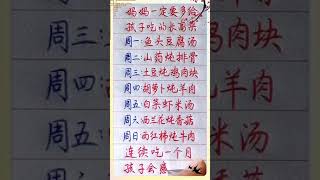 妈妈一定要多给
孩子吃的长高菜
周一:鱼头豆腐汤
周二:山药炖排骨
周三:土豆炖鸡肉块
周四:胡萝卜炖羊肉
周五:白菜虾米汤
周六:西兰花炖香菇
周日:西红柿炖牛肉
连续吃一个月
孩子会感